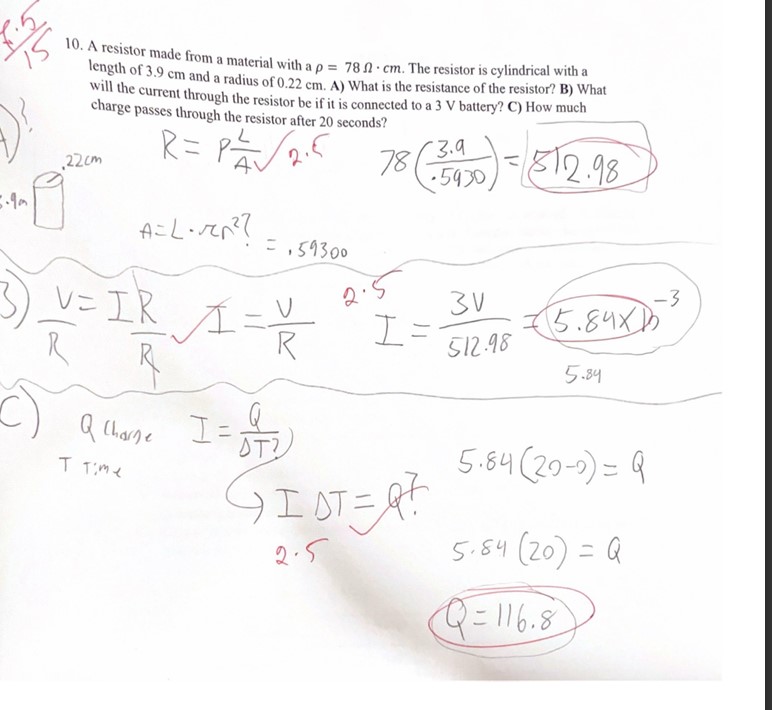 7.5/15
10. A resistor made from a material with a ρ = 78 Ω · cm. The resistor is cylindrical with a
length of 3.9 cm and a radius of 0.22 cm. A) What is the resistance of the resistor? B) What
will the current through the resistor be if it is connected to a 3 V battery? C) How much
charge passes through the resistor after 20 seconds?
A)?
R = ρ L/A ✓ 2.5
78 (3.9/.5930) = 512.98
.22cm
3.9m
A = L · πr²? = .59300
B) V/R = IR/R ✓ I = V/R
2.5
I = 3V/512.98 = 5.84 x 10⁻³
5.84
C) Q Charge
T Time
I = Q/ΔT?)
I ΔT = Q?
2.5
5.84 (20-0) = Q
5.84 (20) = Q
Q = 116.8